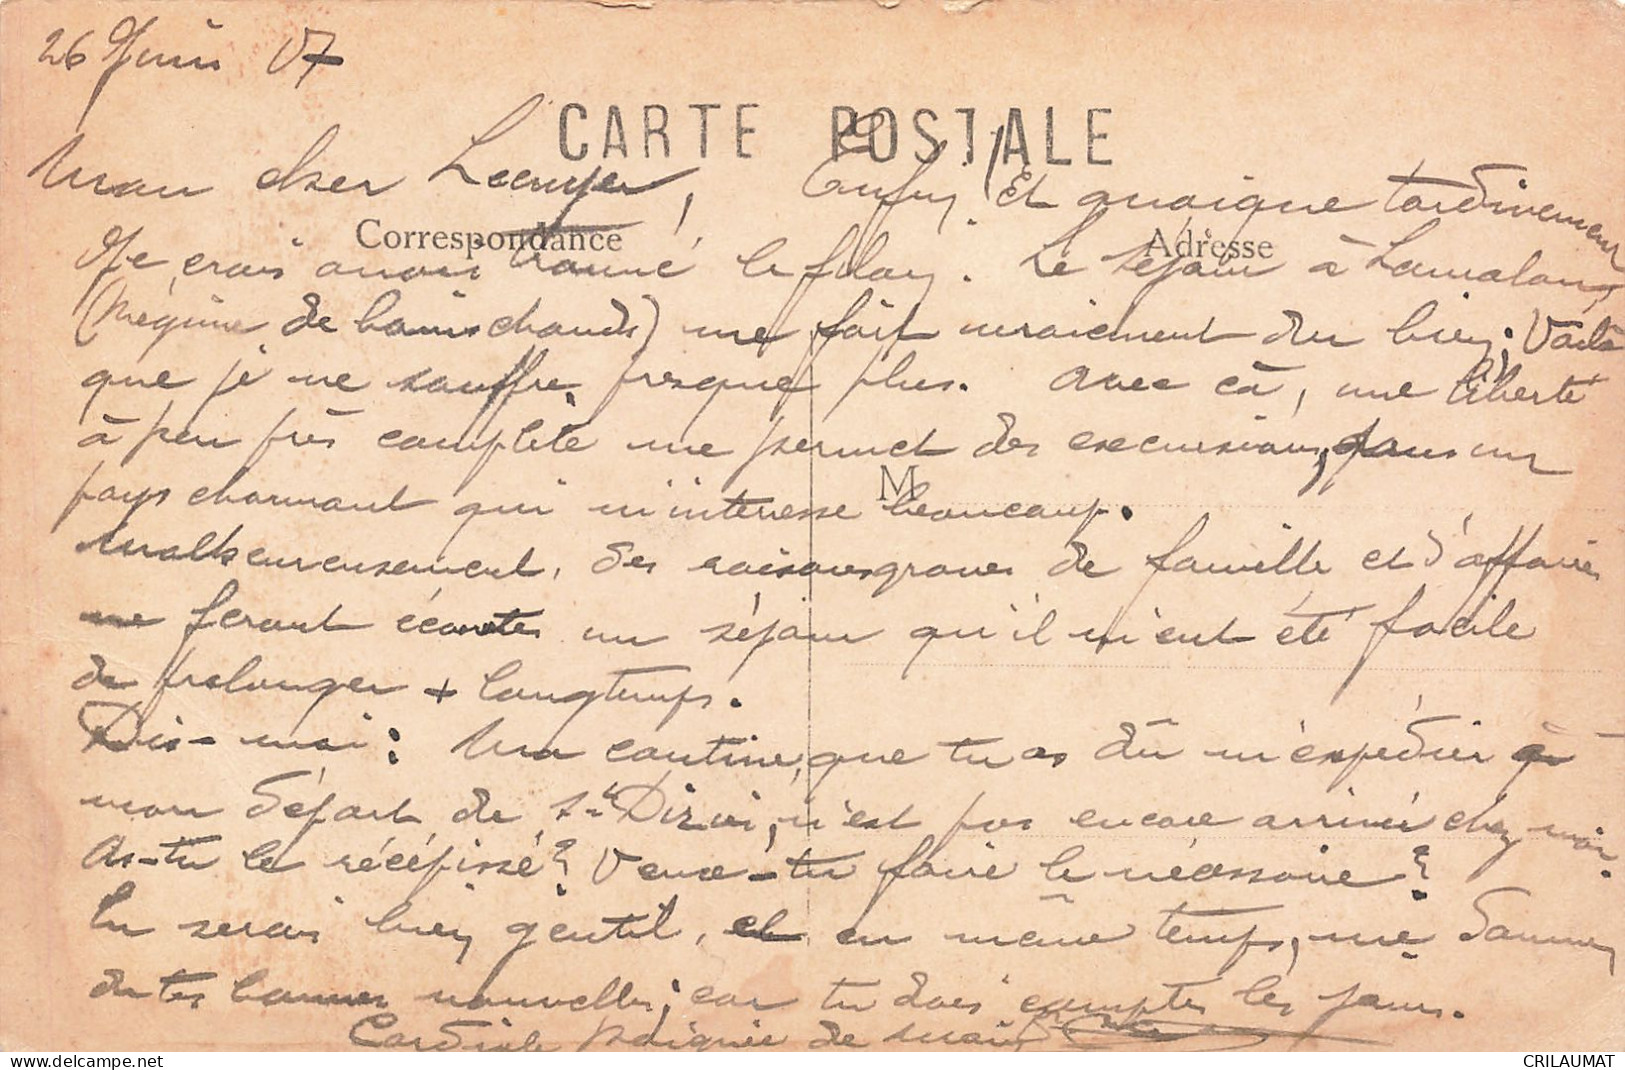 26 Juin 07
CARTE POSTALE
Mon cher Lecuyer, Enfin! Et quoique tardivement
Correspondance
Adresse
Je crois avoir trouvé le filon. Le séjour à Lamalou,
(Régime de bains chauds) me fait vraiment du bien; Voilà
que je ne souffre presque plus. Avec cà, une liberté
à peu près complète me permet des excursions, dans un
M
pays charmant qui m'intéresse beaucoup.
Malheureusement, des raisons graves de famille et d'affaires
me feront écourter un séjour qu'il m'eut été facile
de prolonger + longtemps.
Dis-moi: Ma cantine, que tu as dû m'expédier à
mon départ de St Dizier, n'est pas encore arrivée chez moi.
As-tu le récépissé? Veux-tu faire le nécessaire?
Tu serais bien gentil, et en même temps, me donner
de tes bonnes nouvelles; car tu dois compter les jours.
Cordiale poignée de main
delcampe.net
CRILAUMAT